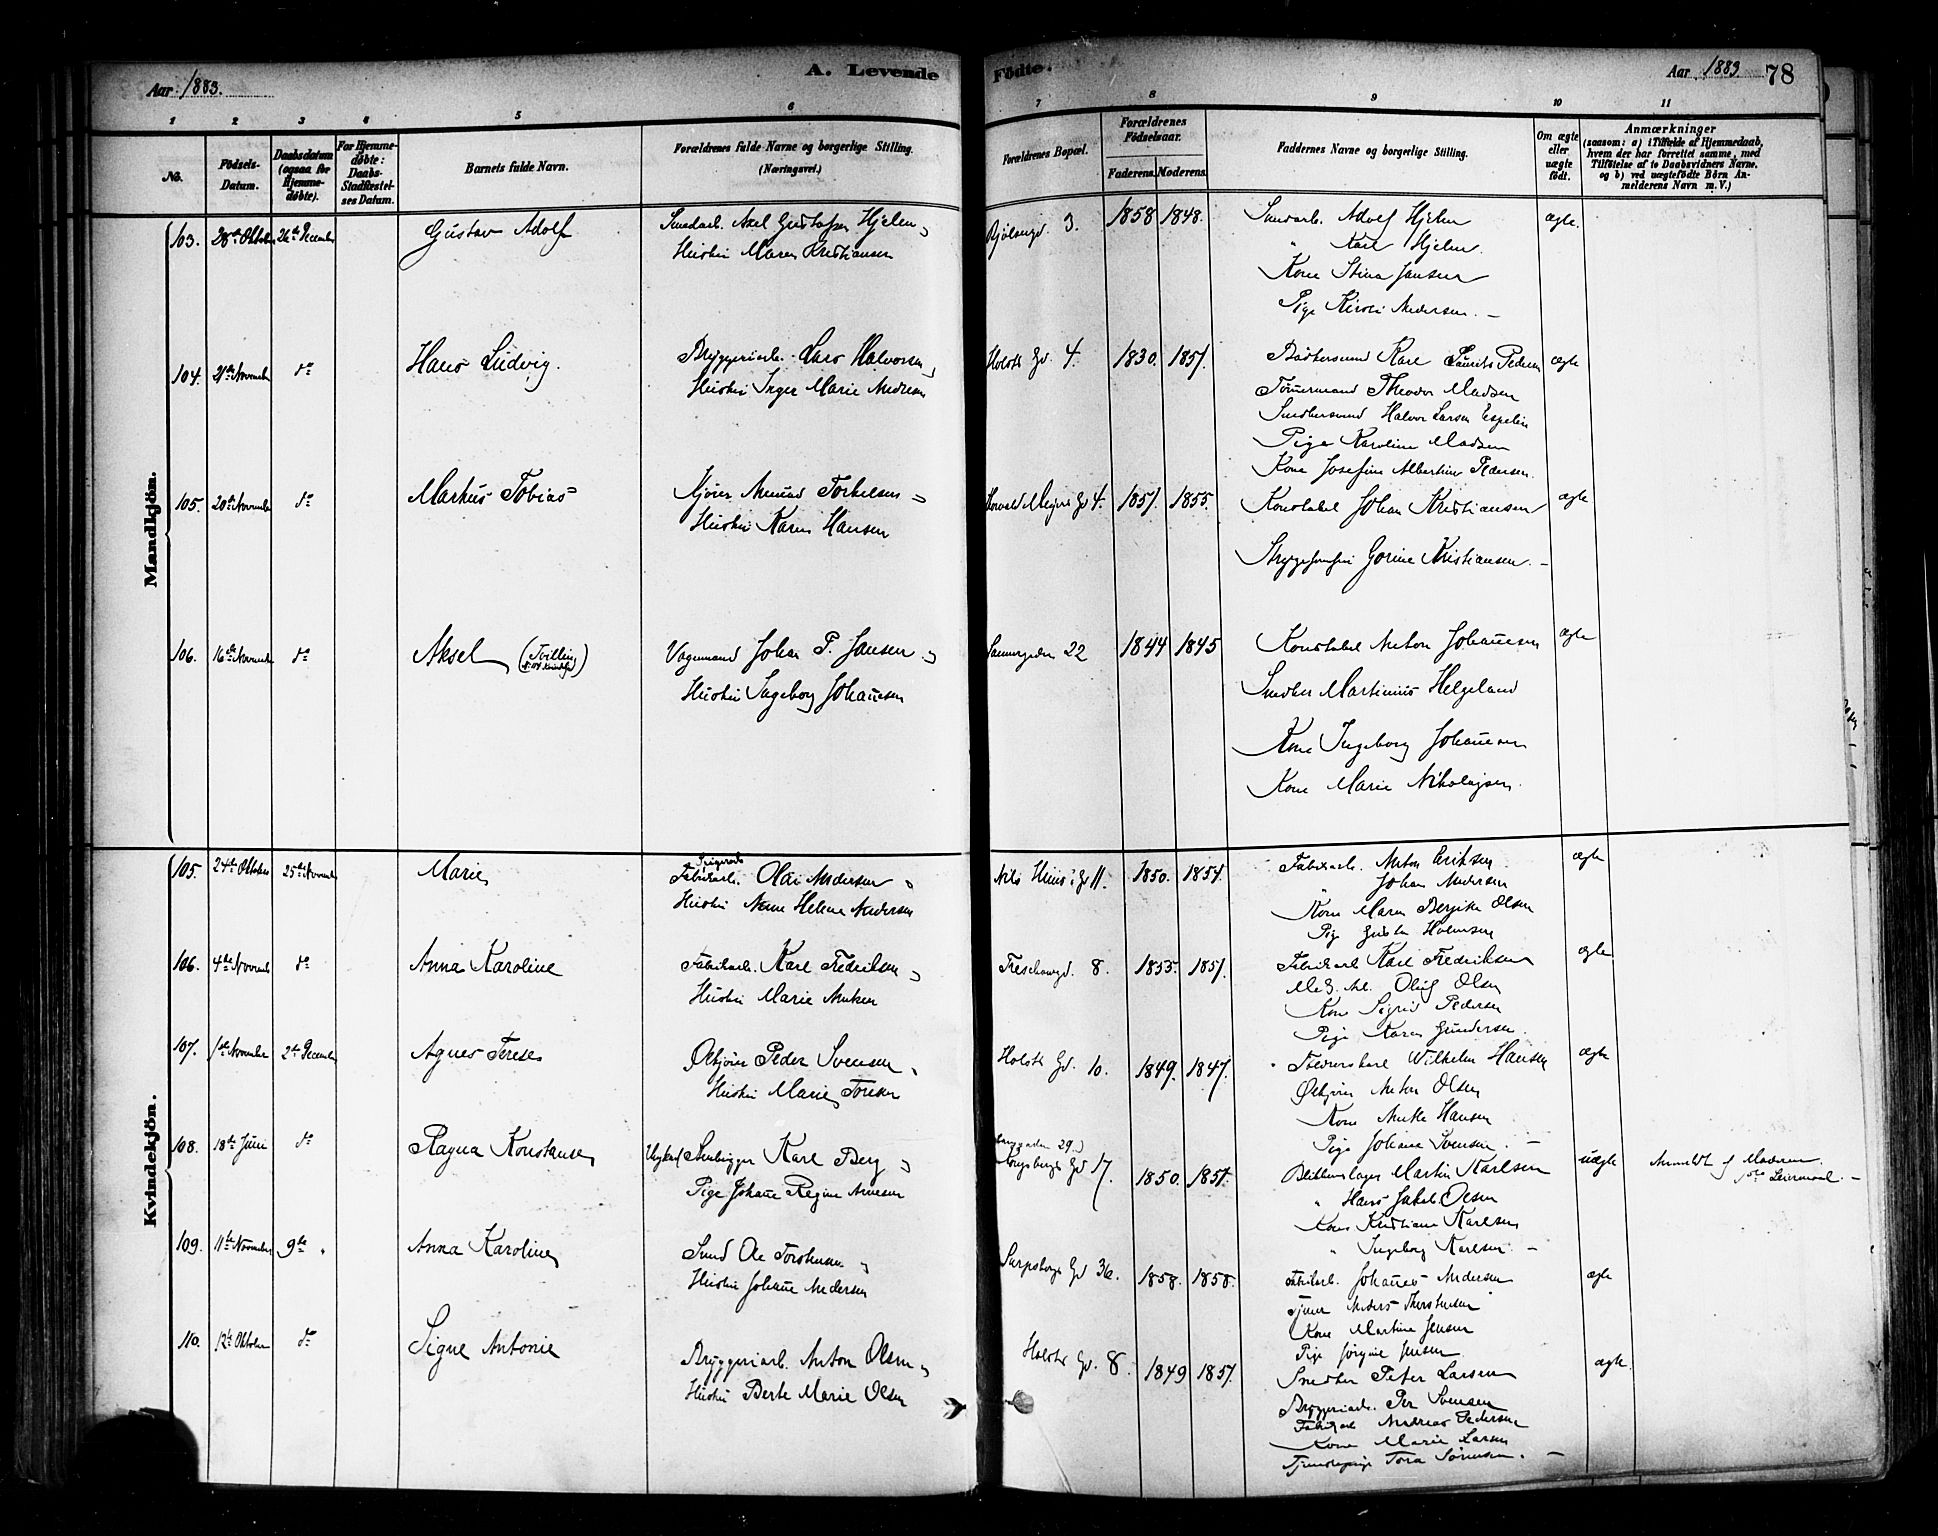 Aar 1883.
A. Levende
Fødte.
Aar 1883
78
1 2 3 4 5 6 7 8 9 10 11
No.
Fødsels-Datum.
Daabsdatum (ogsaa for Hjemmedøbte).
For Hjemmedøbte: Daabs-Stadfæstelses Datum.
Barnets fulde Navn.
Forældrenes fulde Navne og borgerlige Stilling. (Næringsvei.)
Forældrenes Bopæl.
Forældrenes Fødselsaar.
Faderens. Moderens.
Faddernes Navne og borgerlige Stilling.
Om ægte eller uægte født.
Anmærkninger (saasom: a) i Tilfælde af Hjemmedaab, hvem der har forrettet samme, med Tilføielse af to Daabsvidners Navne. og b) ved uægtefødte Børn Anmelderens Navn m. V.)
Mandkjön.
103. 28de Oktober 26de December Gustav Adolf
Axel Gustafsen Hjelm
Hustru Maren Kristiansen
3. 1858 1848.
Adolf Hjelm ægte.
" Karl Hjelm.
Kone Stina Jansen
Pige Andersen. –
104. 21de November do Hans Ludvig.
Bryggeriarb. Lars Halvorsen
Hustru Inger Marie Andersen
Holsts Gd. 4. 1830. 1851.
Karl Laurits Pedersen ægte
Tømmermand Theodor Madsen
Halvor Larsen Espelin
Pige Karoline Madsen
Kone Josefine Albertine Pedersen
105. 20de November do Markus Tobias
Torkelsen
Hustru Karen Hansen
Thorvald Meyers Gd 4. 1851. 1855.
Konstabel Johan Kristiansen ægte
Gorine Kristiansen. –
106. 16de November do Aksel (Tvilling
Vognmand Johan P. Jansen
Hustru Ingeborg Johansen
22 1844 1845
Konstabel Anton Johansen ægte
Snedker Martinius Helgeland
Kone Ingeborg Johansen
Kone Marie Nikolaysen.
Kvindekjön.
105. 24de Oktober 25de November Marie
Fabrikarb. Andersen
Hustru Helene Andersen
11. 1850. 1854.
Fabrikarb. Anton Eriksen ægte
" Johan Andersen
Kone Maren Olsen
Pige Holmsen
106. 4de November do Anna Karoline
Fabrikarb. Karl Fredriksen
Hustru Marie
Treschowgd. 8. 1855. 1851.
Fabrikarb Karl Fredriksen ægte
Oluf Olsen
Kone Sigrid Pedersen
Pige Karen Gundersen.
107. 1ste November 2den December Agnes Terese
Peder Svensen
Hustru Marie
Holsts Gd. 10. 1849. 1847.
Wilhelm Hansen ægte
Anton Olsen
Kone Hansen
Pige Johanne Svensen. –
108. 18de Juni do Ragna Konstanse
Karl Berg
Pige Johanne Regine Arnesen
29.)
Kongsbergs Gd 17. 1850. 1851.
Blikkenslager Martin Karlsen uægte
" Hans Jakob Olsen
Kone Kristiane Karlsen
" Ingeborg Karlsen. –
Anmeldt af Moderen
109. 11te November 9de " Anna Karoline
Smed Ole Torstensen
Hustru Johanne Andersen
Sarpsborgs Gd 36. 1858. 1858.
Fabrikarb. Johannes Andersen ægte
Anders Thorstensen
Kone Martine Jensen
Pige Jørgine Jensen.
110. 12te Oktober do Signe Antonie
Bryggeriarb. Anton Olsen
Hustru Berte Marie Olsen
Holsts Gd. 8. 1849 1851.
Snedker Peter Larsen ægte.
Bryggeriarb. Per Svensen
Fabrikarb Andreas Pedersen
Kone Marie Larsen
Tjenestepige Tora Sørensen. –